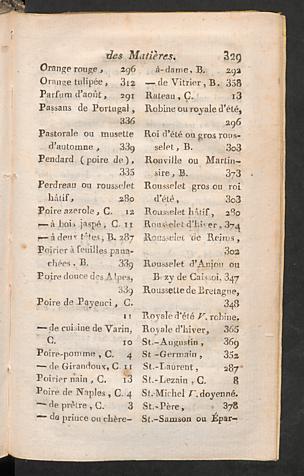 des Matières. 329
Orange rouge, 296
Orange tulipée, 312
Parfum d'août, 291
Passans de Portugal,
336
Pastorale ou musette
d'automne, 339
Pendard (poire de),
335
Perdreau ou rousselet
hâtif, 280
Poire azerole, C. 12
— à bois jaspé, C. 11
— à deux têtes, B. 287
Poirier à feuilles pana-
chées, B. 339
Poire douce des Alpes,
339
Poire de Payenci, C.
11
— de cuisine de Varin,
C. 10
Poire-pomme, C. 4
— de Girandoux, C. 11
Poirier nain, C. 13
Poire de Naples, C. 4
— de prêtre, C. 3
— de prince ou chère-
à-dame, B. 292
— de Vitrier, B. 358
Rateau, C. 13
Robine ou royale d'été,
296
Roi d'été ou gros rous-
selet, B. 303
Ronville ou Martin-
sire, B. 373
Rousselet gros ou roi
d'été, 303
Rousselet hâtif, 280
Rousselet d'hiver, 374
Rousselet de Reims,
302
Rousselet d'Anjou ou
de Caissoi, 347
Roussette de Bretagne,
348
Royale d'été V. robine.
Royale d'hiver, 365
St.-Augustin, 369
St-Germain, 352
St.-Laurent, 287
St.-Lezain, C. 8
St.-Michel V. doyenné.
St.-Père, 378
St.-Samson ou Épar-